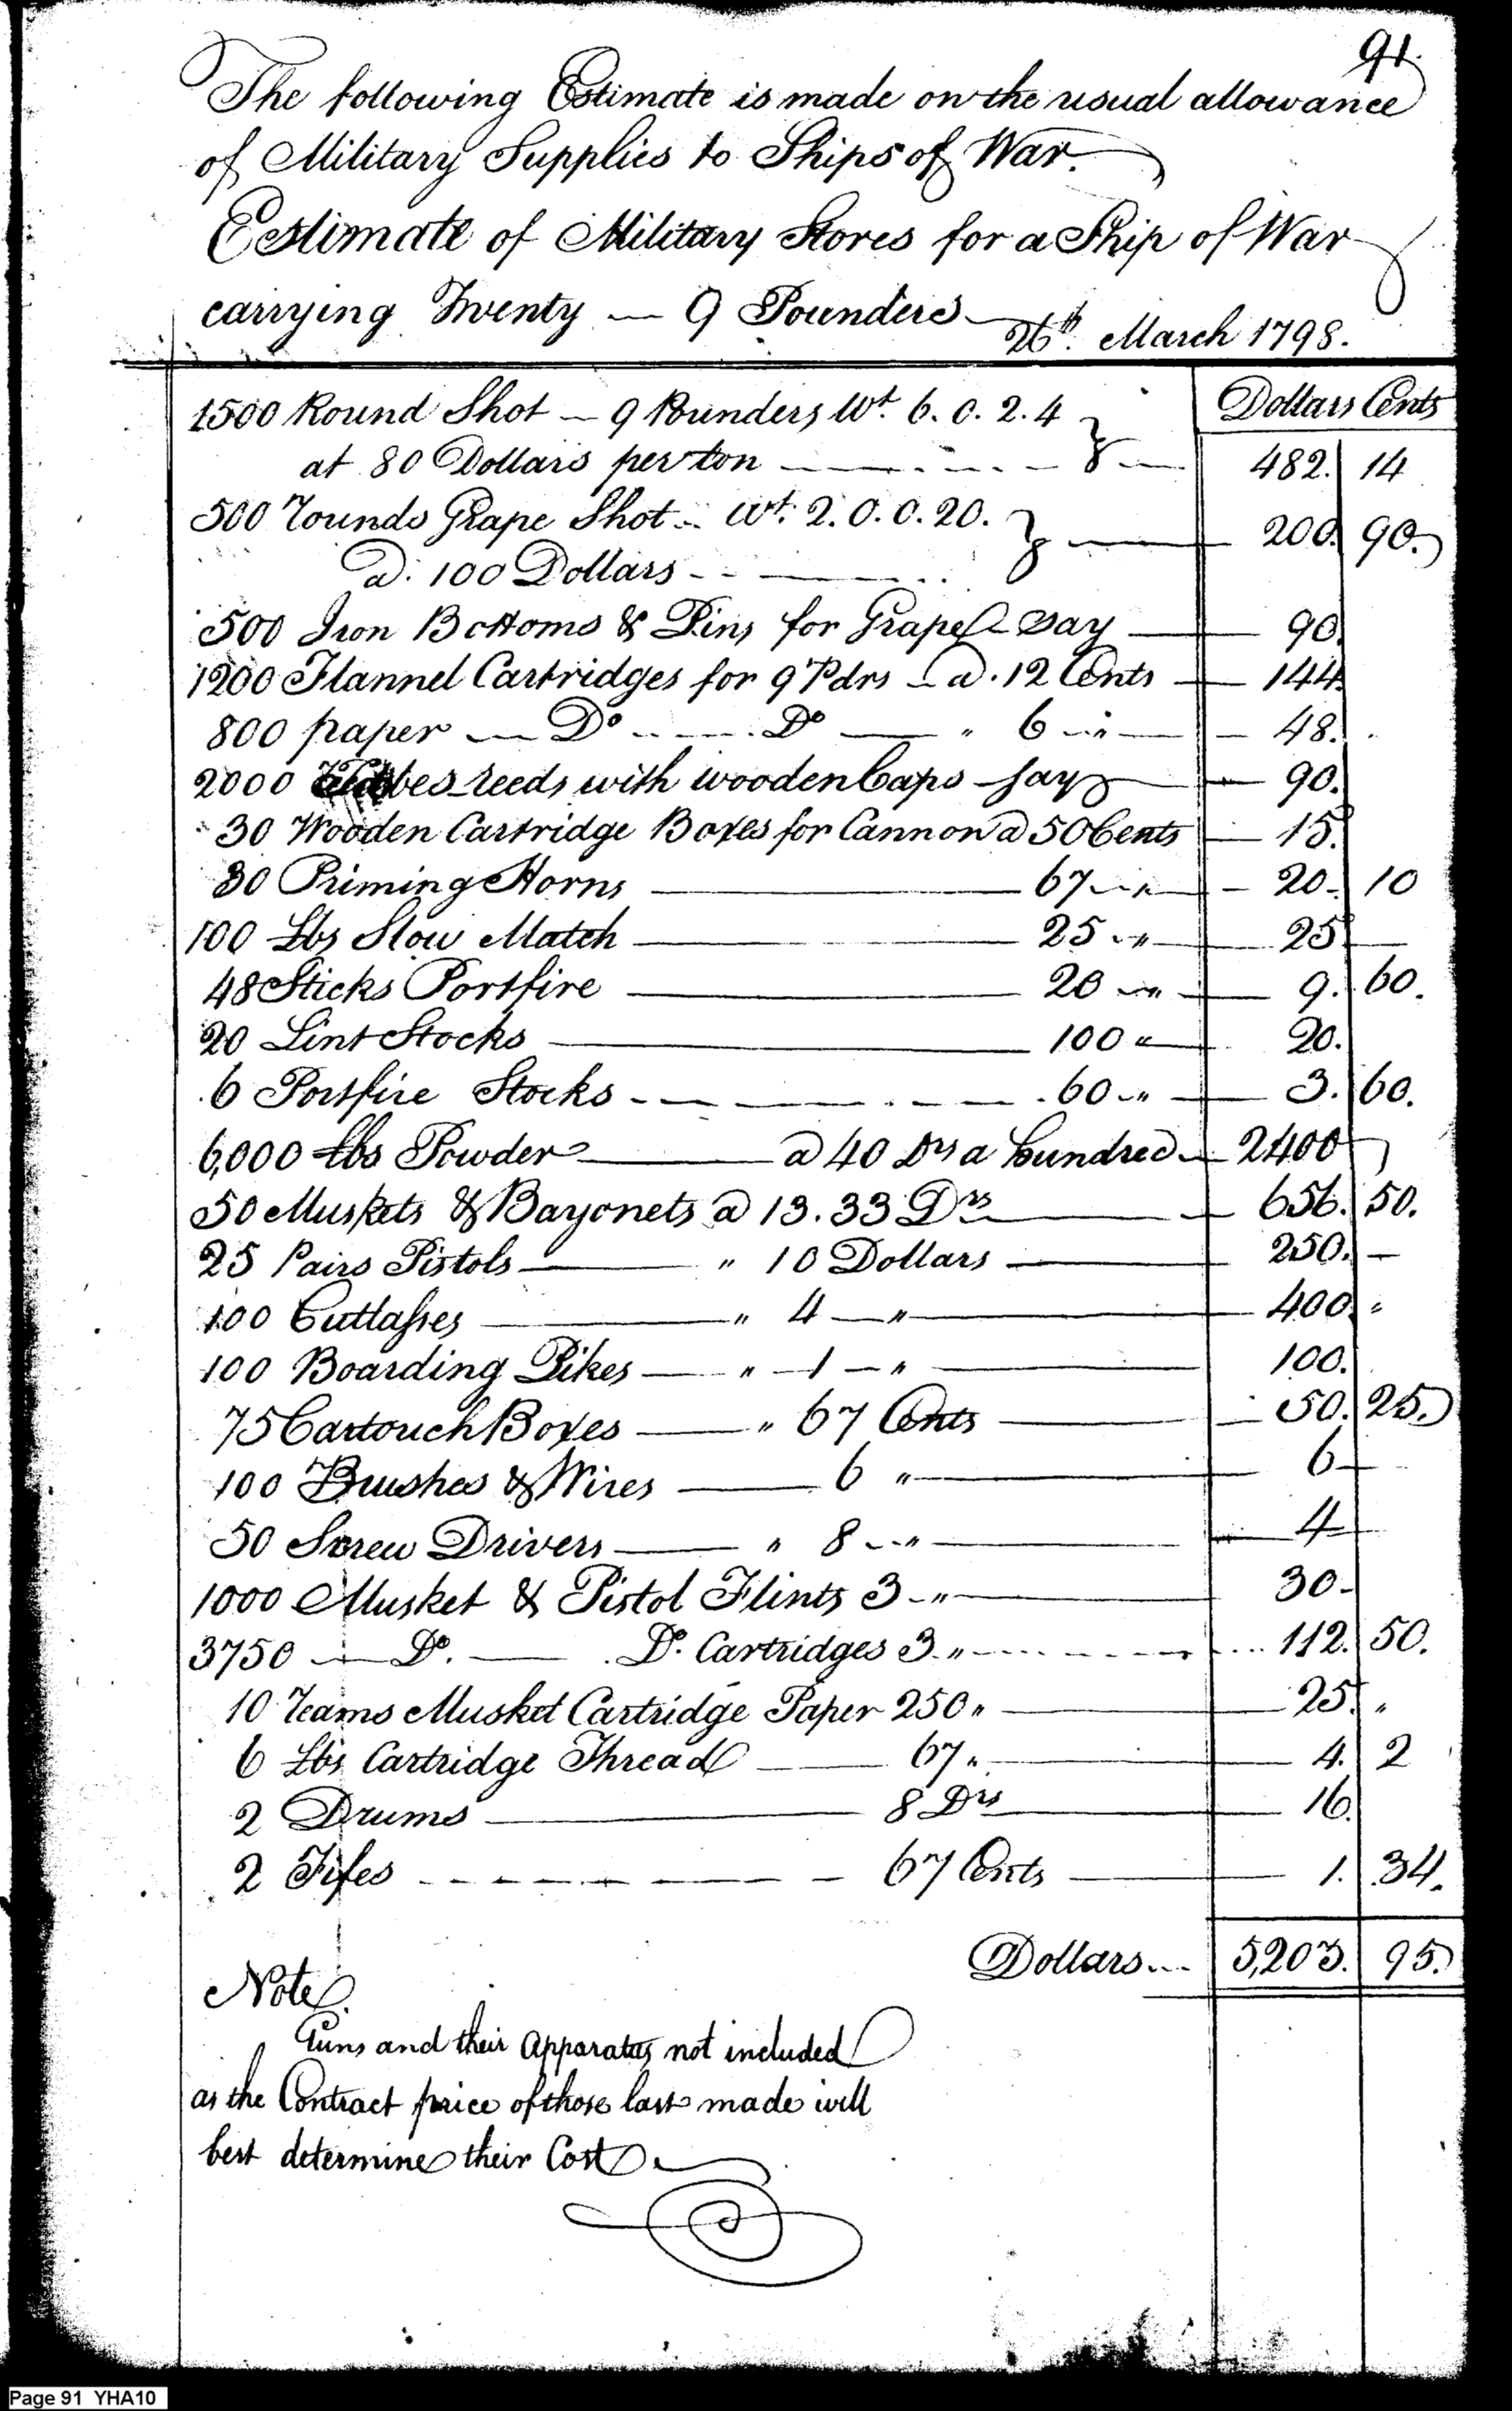 91.
The following Estimate is made on the usual allowance
of Military Supplies to Ships of War.
Estimate of Military Stores for a Ship of War
carrying Twenty — 9 Pounders
26th. March 1798.
Dollars Cents
1500 Round Shot — 9 Pounders Wt. 6. 0. 2. 4
at 80 Dollars per ton — 482. 14
500 rounds Grape Shot .. Wt. 2. 0. 0. 20.
a. 100 Dollars — 200. 90.
500 Iron Bottoms & Pins for Grape — say — 90.
1200 Flannel Cartridges for 9 Pdrs — a. 12 Cents — 144.
800 paper — Do — Do — " 6 " — 48.
2000 Tubes reeds with wooden Caps — say — 90.
30 Wooden Cartridge Boxes for Cannon a 50 Cents — 15.
30 Priming Horns — 67 " — 20. 10
100 Lbs Slow Match — 25 " — 25 —
48 Sticks Portfire — 20 " — 9. 60.
20 Lint Stocks — 100 " — 20.
6 Portfire Stocks — 60 " — 3. 60.
6,000 Lbs Powder — a 40 Drs a hundred — 2400
50 Muskets & Bayonets a 13.33 Drs — 656. 50.
25 Pairs Pistols — " 10 Dollars — 250. —
100 Cutlasses — " 4 — " — 400. "
100 Boarding Pikes — " — 1 — " — 100.
75 Cartouch Boxes — " 67 Cents — 50. 25.
100 Brushes & Wires — 6 " — 6
50 Screw Drivers — " 8 " — 4
1000 Musket & Pistol Flints 3 " — 30
3750 — Do. — Do. Cartridges 3 " — 112. 50.
10 reams Musket Cartridge Paper 250 " — 25. "
6 Lbs Cartridge Thread — 67 " — 4. 2
2 Drums — 8 Drs — 16.
2 Fifes — 67 Cents — 1. 34.
Dollars... 5,203. 95.
Note.
Guns and their Apparatus not included
as the Contract price of those last made will
best determine their Cost.
Page 91 YHA10